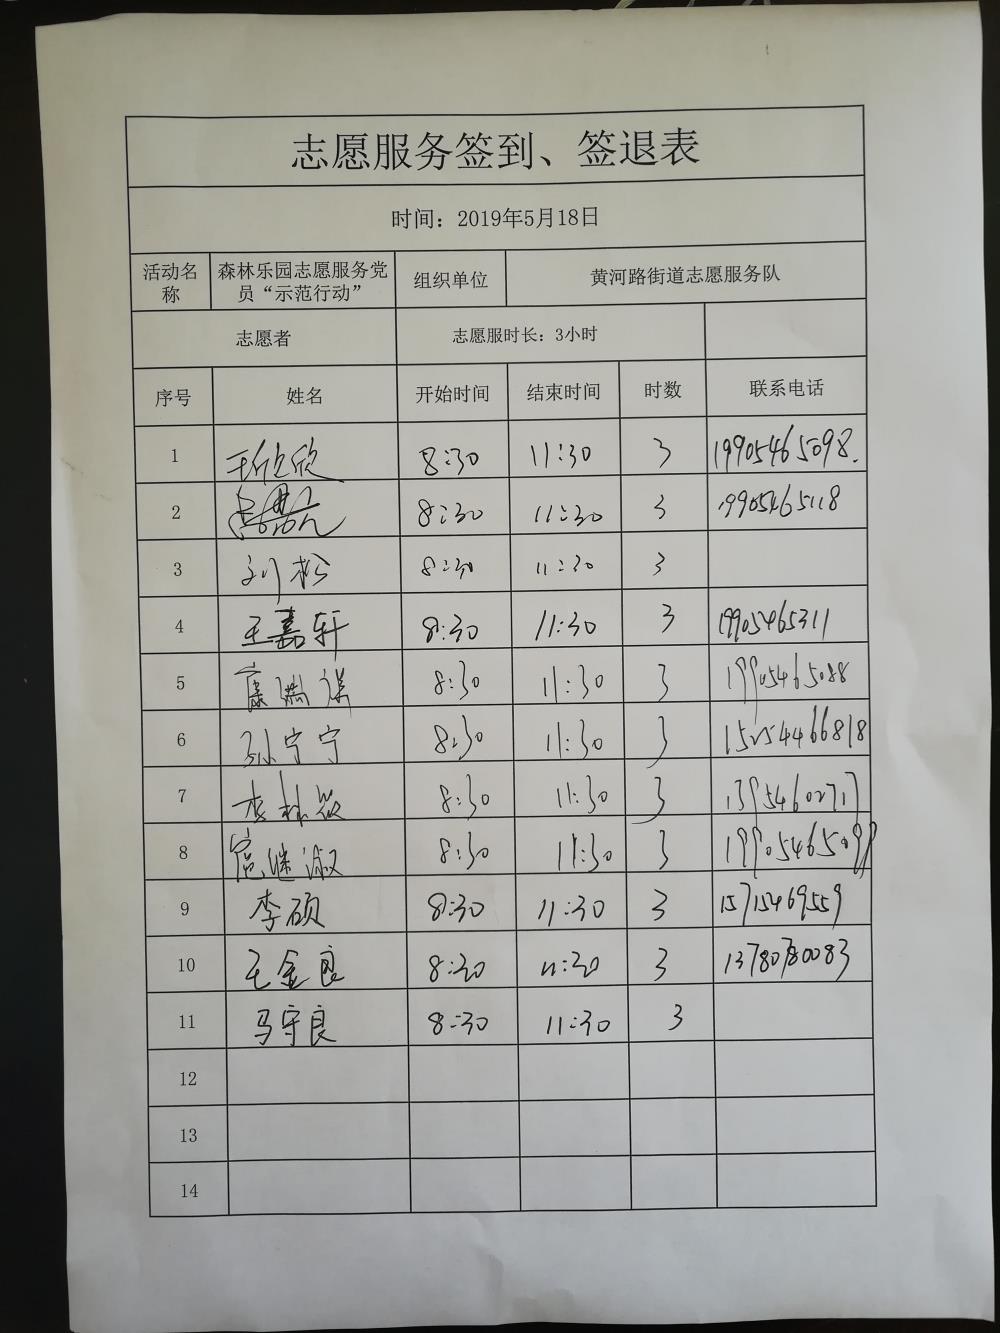 志愿服务签到、签退表
时间：2019年5月18日
活动名称 森林乐园志愿服务党员“示范行动” 组织单位 黄河路街道志愿服务队
志愿者 志愿服时长：3小时
序号 姓名 开始时间 结束时间 时数 联系电话
1 王欣欣 8:30 11:30 3 19905465098.
2 8:30 11:30 3 19905465118
3 刘松 8:30 11:30 3
4 王嘉轩 8:30 11:30 3 19905465311
5 8:30 11:30 3 19905465088
6 孙宁宁 8:30 11:30 3 15254466818
7 李林 8:30 11:30 3 13954602717
8 继淑 8:30 11:30 3 19905465099
9 李硕 8:30 11:30 3 15715469559
10 王金良 8:30 11:30 3 13780780083
11 马守良 8:30 11:30 3
12
13
14